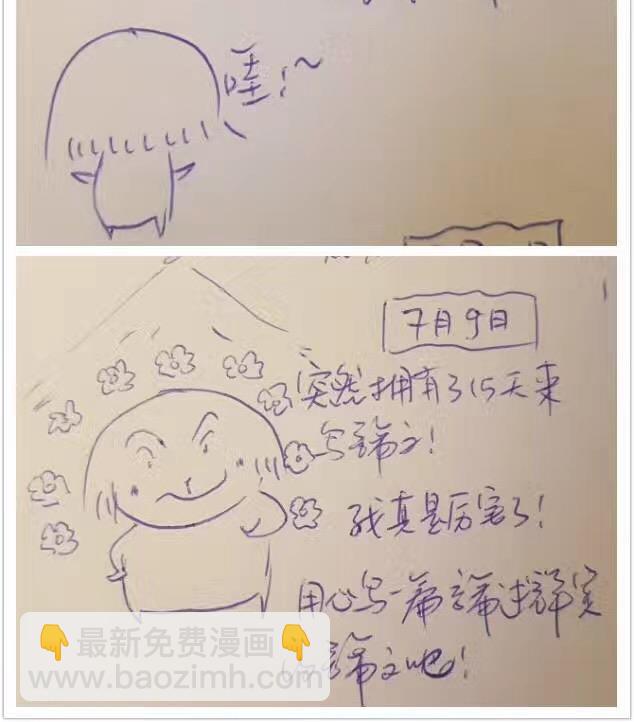 哇!~
7月9日
突然拥有了15天来
写论文!
我真是厉害了!
用心写一篇论述详实
的论文吧!
👇最新免费漫画👇
www.baozimh.com